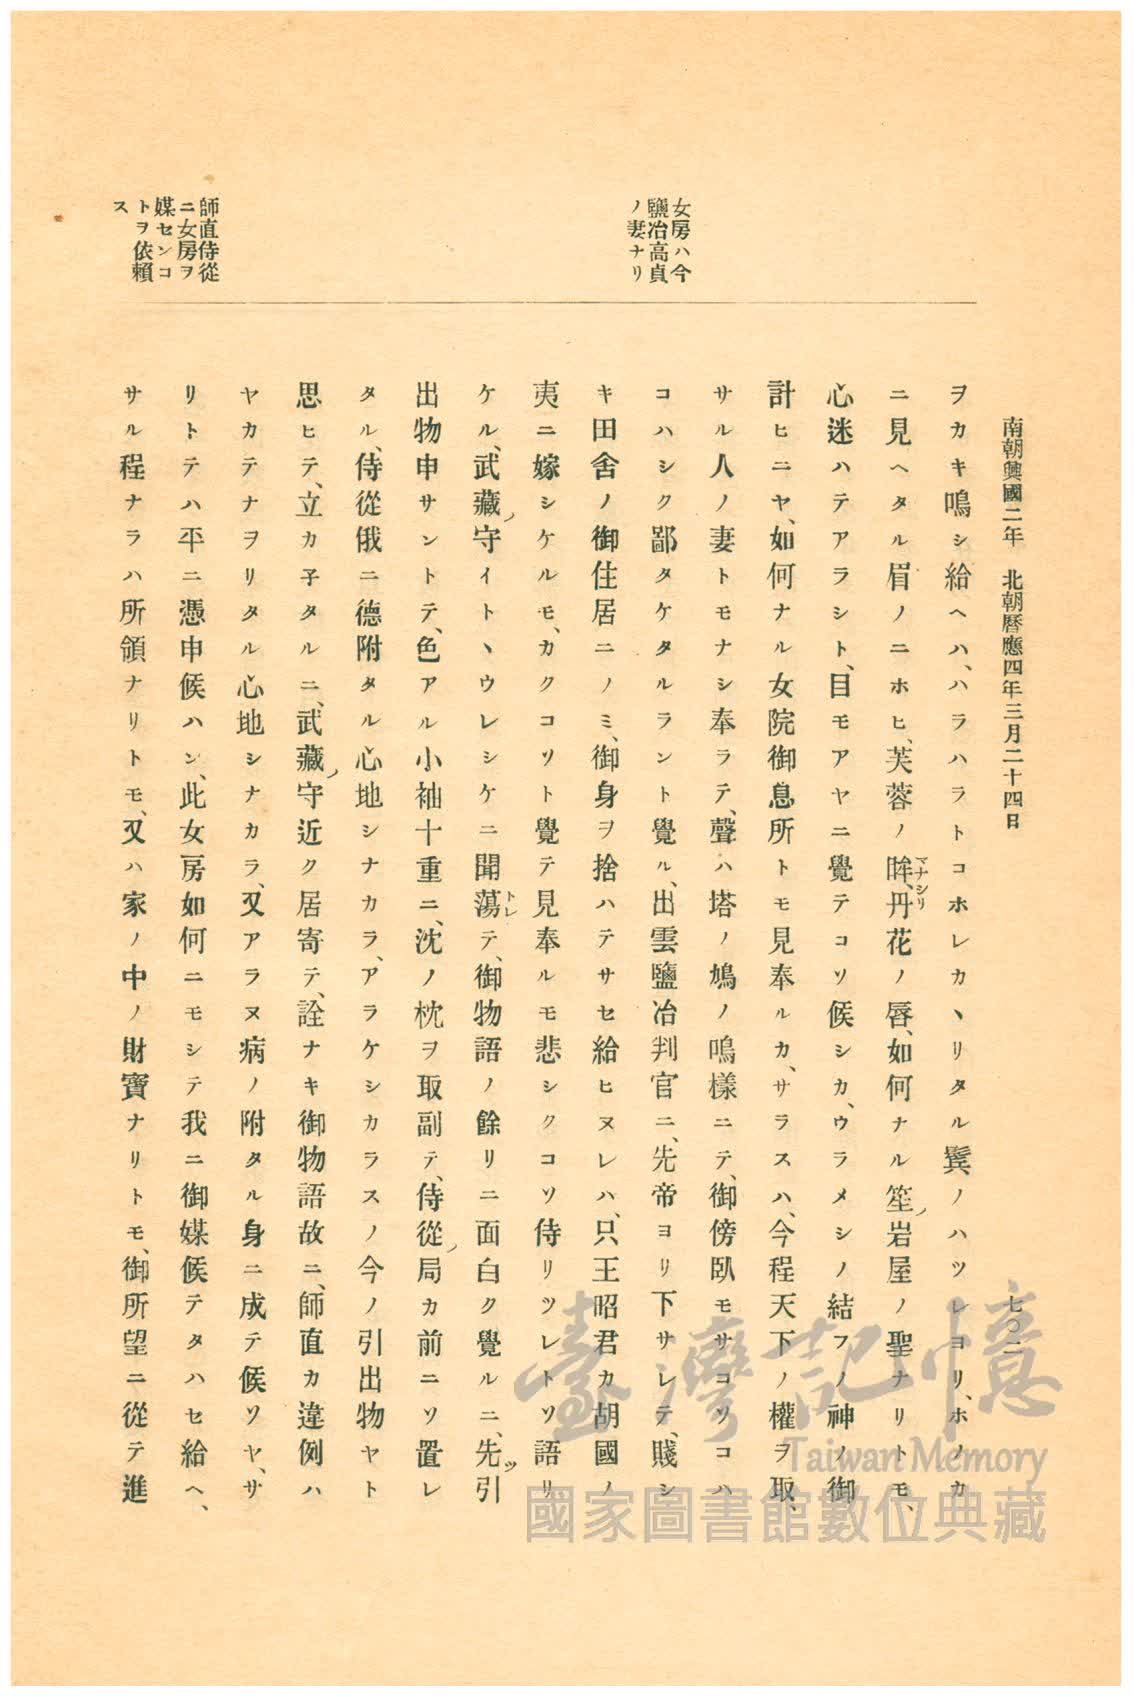 南朝興國二年　北朝曆應四年三月二十四日
七〇二
ヲカキ鳴シ給ヘハ、ハラハラトコホレカヽリタル鬂ノハツレヨリ、ホノカ
ニ見ヘタル眉ノニホヒ、芙蓉ノ眸、丹花ノ唇、如何ナル笙ノ岩屋ノ聖ナリトモ、
マナシリ
心迷ハテアラシト、目モアヤニ覺テコソ候シカ、ウラメシノ結フノ神ノ御
計ヒニヤ、如何ナル女院御息所トモ見奉ルカ、サラスハ、今程天下ノ權ヲ取、
サル人ノ妻トモナシ奉ラテ、聲ハ塔ノ鳩ノ鳴樣ニテ、御傍臥モサコソコハ
コハシク鄙タケタルラント覺ル、出雲鹽冶判官ニ、先帝ヨリ下サレテ、賤シ
キ田舍ノ御住居ニノミ、御身ヲ捨ハテサセ給ヒヌレハ、只王昭君カ胡國ノ
夷ニ嫁シケルモ、カクコソト覺テ見奉ルモ悲シクコソ侍リツレトソ語リ
ケル、武藏ノ守イトヽウレシケニ聞蕩テ、御物語ノ餘リニ面白ク覺ルニ、先ツ引
トレ
出物申サントテ、色アル小袖十重ニ、沈ノ枕ヲ取副テ、侍從ノ局カ前ニソ置レ
タル、侍從俄ニ德附タル心地シナカラ、アラケシカラスノ今ノ引出物ヤト
思ヒテ、立カ子タルニ、武藏ノ守近ク居寄テ、詮ナキ御物語故ニ、師直カ違例ハ
ヤカテナヲリタル心地シナカラ、又アラヌ病ノ附タル身ニ成テ候ソヤ、サ
リトテハ平ニ憑申候ハン、此女房如何ニモシテ我ニ御媒候テタハセ給ヘ、
サル程ナラハ所領ナリトモ、又ハ家ノ中ノ財寶ナリトモ、御所望ニ從テ進
女房ハ今
鹽冶高貞
ノ妻ナリ
師直侍從
ニ女房ヲ
媒センコ
トヲ依賴
ス
臺灣記憶
Taiwan Memory
國家圖書館數位典藏